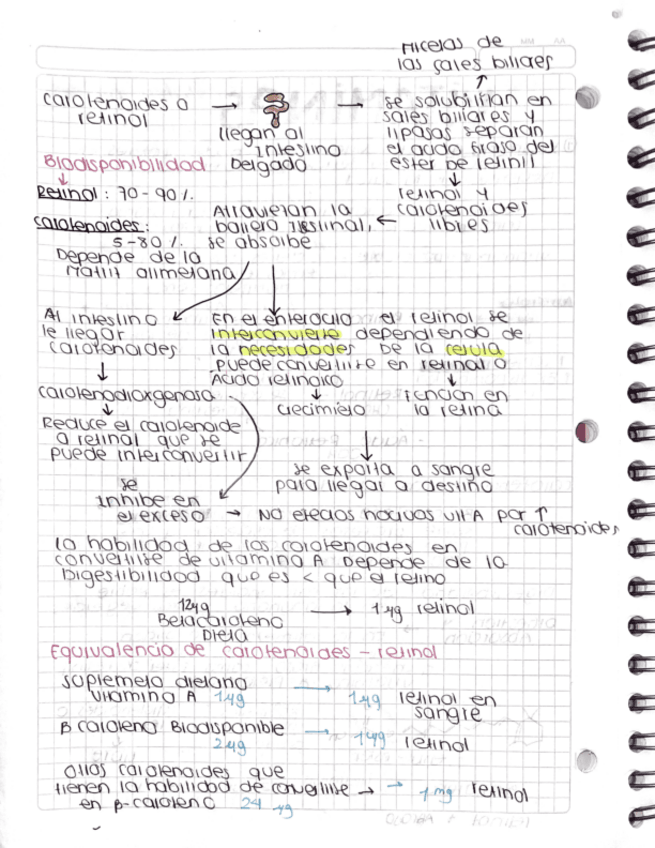 Micelas de
las sales biliares
carotenoides a
retinol
→
llegan al
intestino
Delgado
→
se solubilizan en
sales biliares y
lipasas separan
el acido graso del
ester de retinil
Biodisponibilidad
Retinol: 70-90%.
carotenoides:
5-80%.
Depende de la
matriz alimetaria
retinol y
carotenoides
libres
Atraviezan la
barrera
se absorbe
Al intestino
le llegar
carotenoides
carotenodioxgenasa
Reduce el carotenoide
a retinal que se
puede interconvertir
En el enterocito el retinol se
interconvierte dependiendo de
la necesidades de la celula
puede convertirse en retinal o
Acido retinoico
crecimieto
funcion en
la retina
se exporta a sangre
para llegar a destino
se
inhibe en
el exceso → No efectos nocivos vit A por ↑
carotenoides
la habilidad de los carotenoides en
convertirse de vitamina A Depende de la
Digestibilidad que es < que el retino
12μg
Betacaroteno
Dieta
→ 1μg retinol
Equivalencia de carotenoides - retinol
suplemeto dietario
vitamina A 1μg → 1μg retinol en
sangre
β caroteno Biodisponible → 1μg retinol
2μg
otros carotenoides que
tienen la habilidad de convertirse → → 1mg retinol
en β-caroteno 24 μg